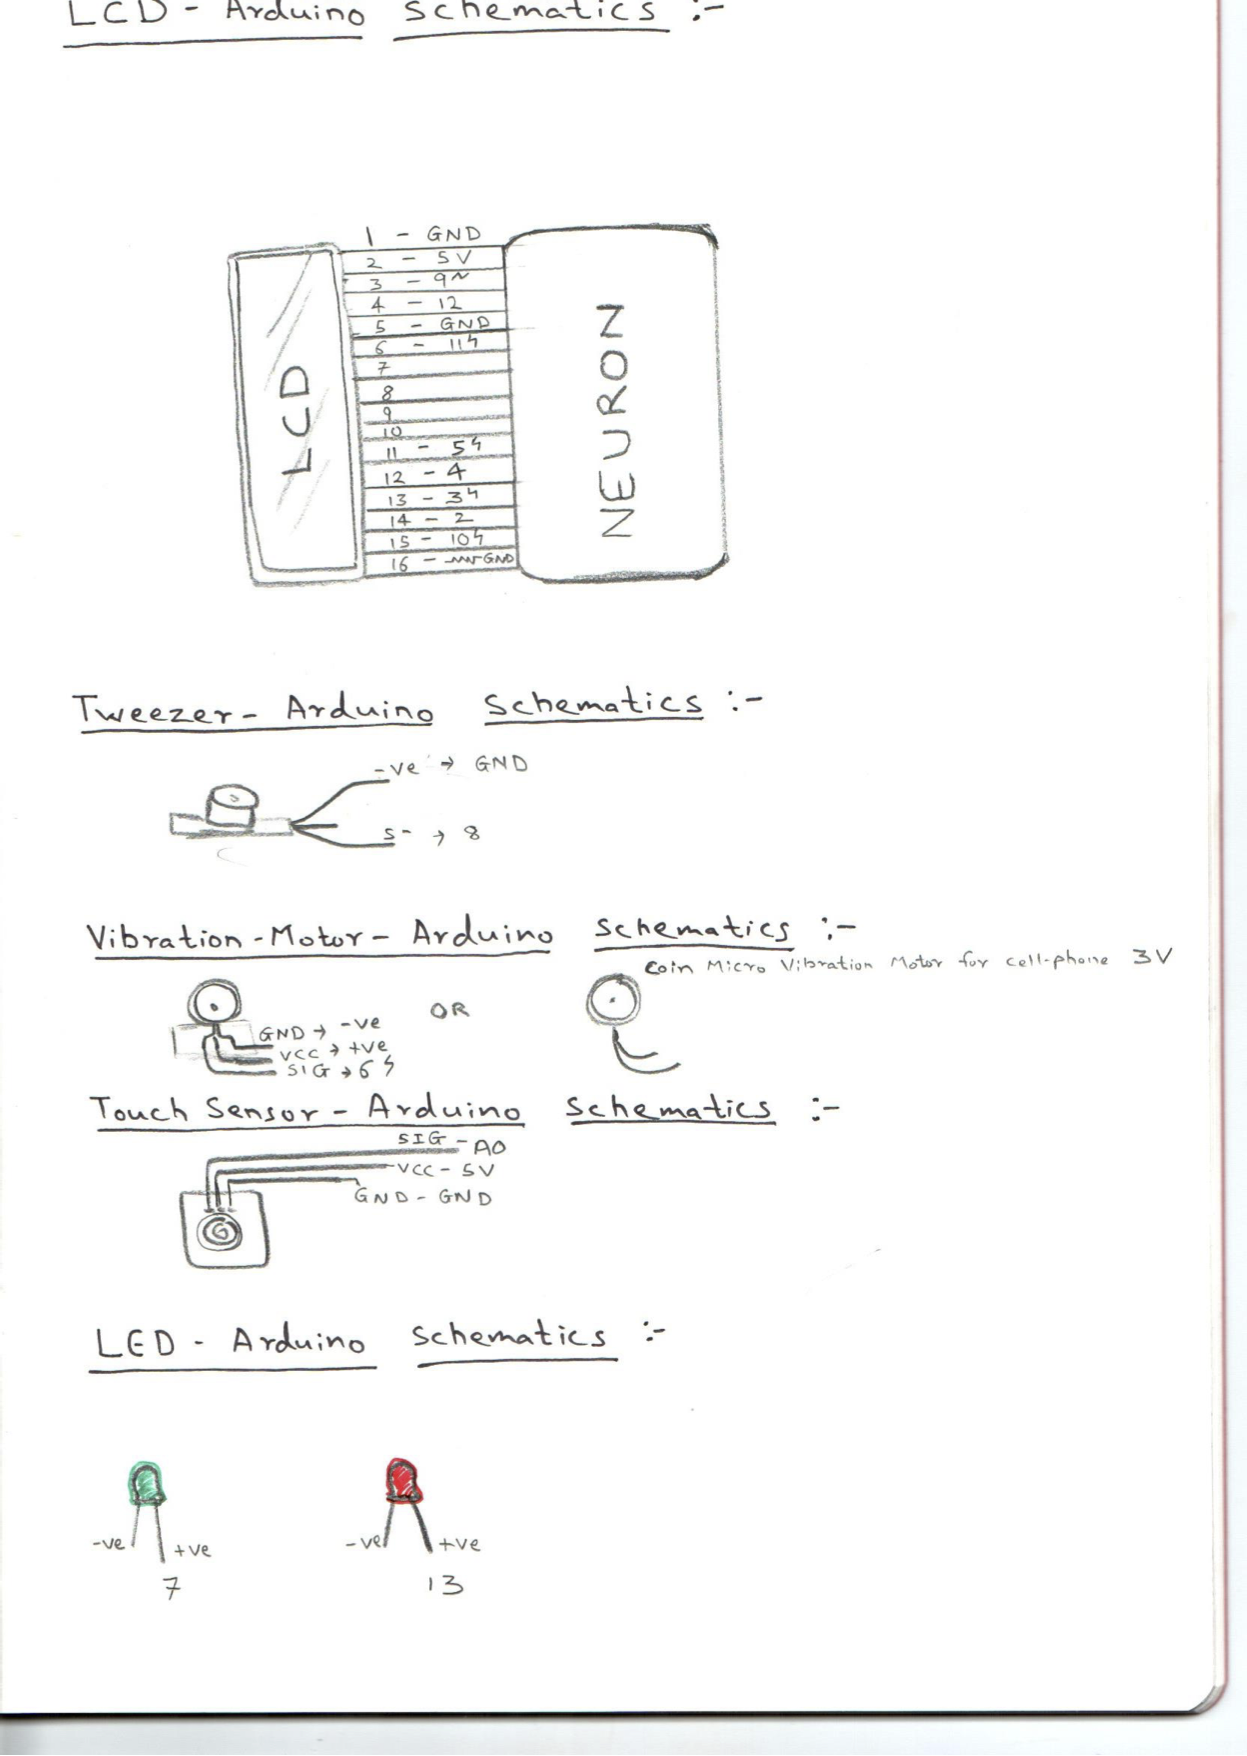 LCD - Arduino Schematics :-
1 - GND
2 - 5V
3 - 9~
4 - 12
5 - GND
6 - 11~
7
8
9
10
11 - 5~
12 - 4
13 - 3~
14 - 2
15 - 10~
16 - GND
LCD
NEURON
Tweezer - Arduino Schematics :-
-ve → GND
S- → 8
Vibration - Motor - Arduino Schematics :-
Coin Micro Vibration Motor for cell-phone 3V
OR
GND → -ve
VCC → +ve
SIG → 6~
Touch Sensor - Arduino Schematics :-
SIG - A0
VCC - 5V
GND - GND
LED - Arduino Schematics :-
-ve +ve
7
-ve +ve
13